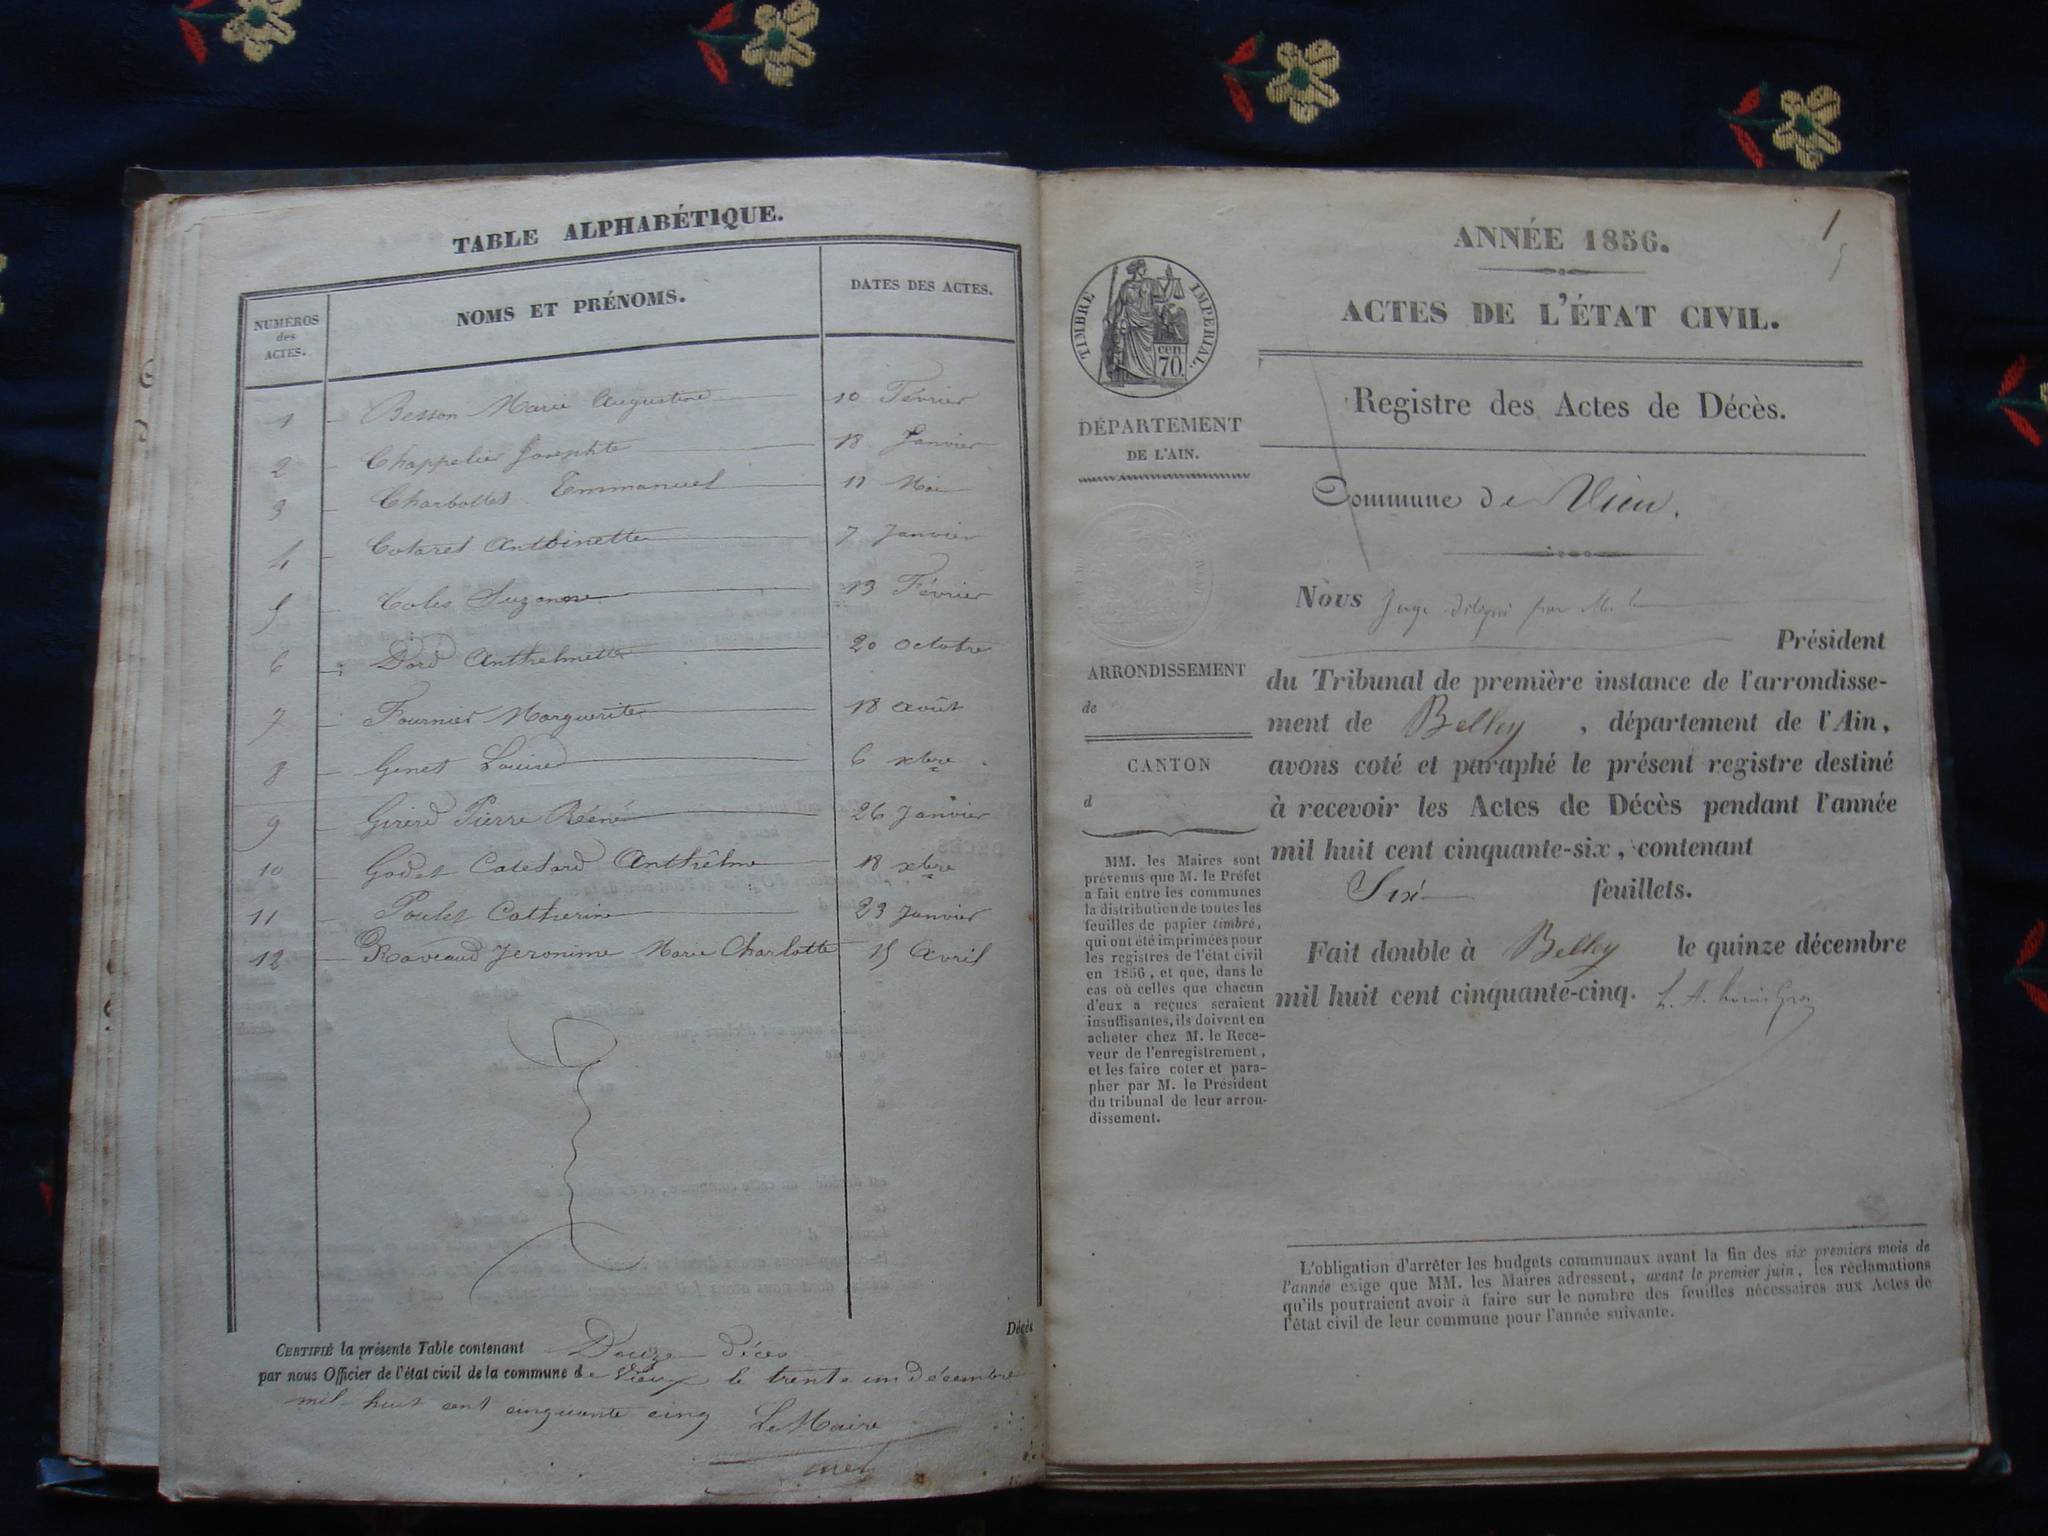 TABLE ALPHABÉTIQUE.
NUMÉROS des ACTES.
NOMS ET PRÉNOMS.
DATES DES ACTES.
1 Besson Marie Augustine 10 Février
2 Chappelier Josephte 18 Janvier
3 Charbollet Emmanuel 11 Mai
4 Cotaret Anthoinette 7 Janvier
5 Suzanne 13 Février
6 Dord Anthelmette 20 Octobre
7 Fournier Marguerite 18 Août
8 Genet Louise 6 xbre
9 Girerd Pierre Réné 26 Janvier
10 Godet Anthelme 18 xbre
11 Poulet Catherine 23 Janvier
12 Raveaud Jeronime Marie Charlotte 15 Avril
CERTIFIÉ la présente Table contenant Douze décès Décès
par nous Officier de l'état civil de la commune de Vieu le trente un Décembre
mil huit cent cinquante cinq Le Maire
1
5
ANNÉE 1856.
ACTES DE L'ÉTAT CIVIL.
TIMBRE IMPERIAL.
cen. 70.
Registre des Actes de Décès.
DÉPARTEMENT
DE L'AIN.
Commune de Vieu.
Nous Juge délégué par M. le
Président
du Tribunal de première instance de l'arrondisse-
ment de Belley, département de l'Ain,
avons coté et paraphé le présent registre destiné
à recevoir les Actes de Décès pendant l'année
mil huit cent cinquante-six, contenant
Six feuillets.
Fait double à Belley le quinze décembre
mil huit cent cinquante-cinq.
ARRONDISSEMENT
de
CANTON
d
MM. les Maires sont
prévenus que M. le Préfet
a fait entre les communes
la distribution de toutes les
feuilles de papier timbré,
qui ont été imprimées pour
les registres de l'état civil
en 1856, et que, dans le
cas où celles que chacun
d'eux a reçues seraient
insuffisantes, ils doivent en
acheter chez M. le Rece-
veur de l'enregistrement,
et les faire coter et para-
pher par M. le Président
du tribunal de leur arron-
dissement.
L'obligation d'arrêter les budgets communaux avant la fin des six premiers mois de
l'année exige que MM. les Maires adressent, avant le premier juin, les réclamations
qu'ils pourraient avoir à faire sur le nombre des feuilles nécessaires aux Actes de
l'état civil de leur commune pour l'année suivante.